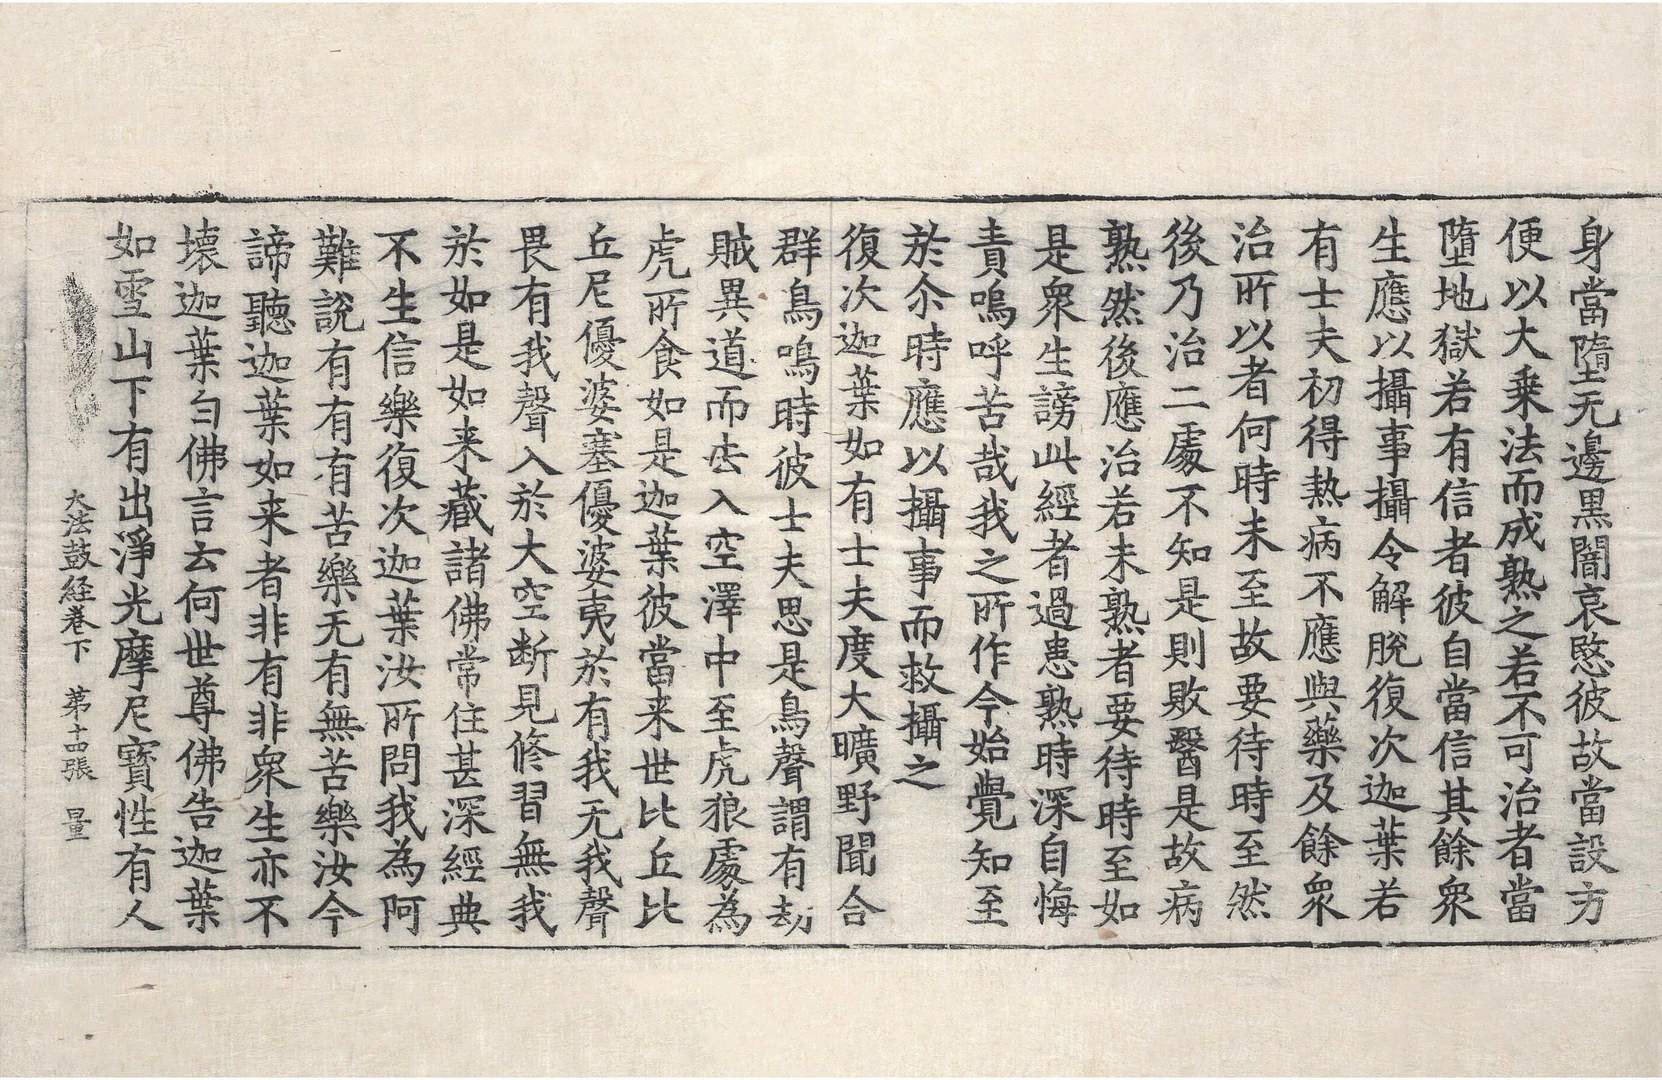 身當墮无邊黑闇哀愍彼故當設方
便以大乗法而成熟之若不可治者當
墮地獄若有信者彼自當信其餘衆
生應以攝事攝令解脫復次迦葉若
有士夫初得熱病不應與藥及餘衆
治所以者何時未至故要待時至然
後乃治二處不知是則敗醫是故病
熟然後應治若未熟者要待時至如
是衆生謗此經者過患熟時深自悔
責嗚呼苦哉我之所作今始覺知至
於尒時應以攝事而救攝之
復次迦葉如有士夫度大曠野聞合
群鳥鳴時彼士夫思是鳥聲謂有劫
賊異道而去入空澤中至虎狼處為
虎所食如是迦葉彼當来世比丘比
丘尼優婆塞優婆夷於有我无我聲
畏有我聲入於大空断見修習無我
於如是如来藏諸佛常住甚深經典
不生信樂復次迦葉汝所問我為阿
難說有有有苦樂无有無苦樂汝今
諦聽迦葉如来者非有非衆生亦不
壞迦葉白佛言云何世尊佛告迦葉
如雪山下有出淨光摩尼寳性有人
大法鼓経卷下 第十四張 量